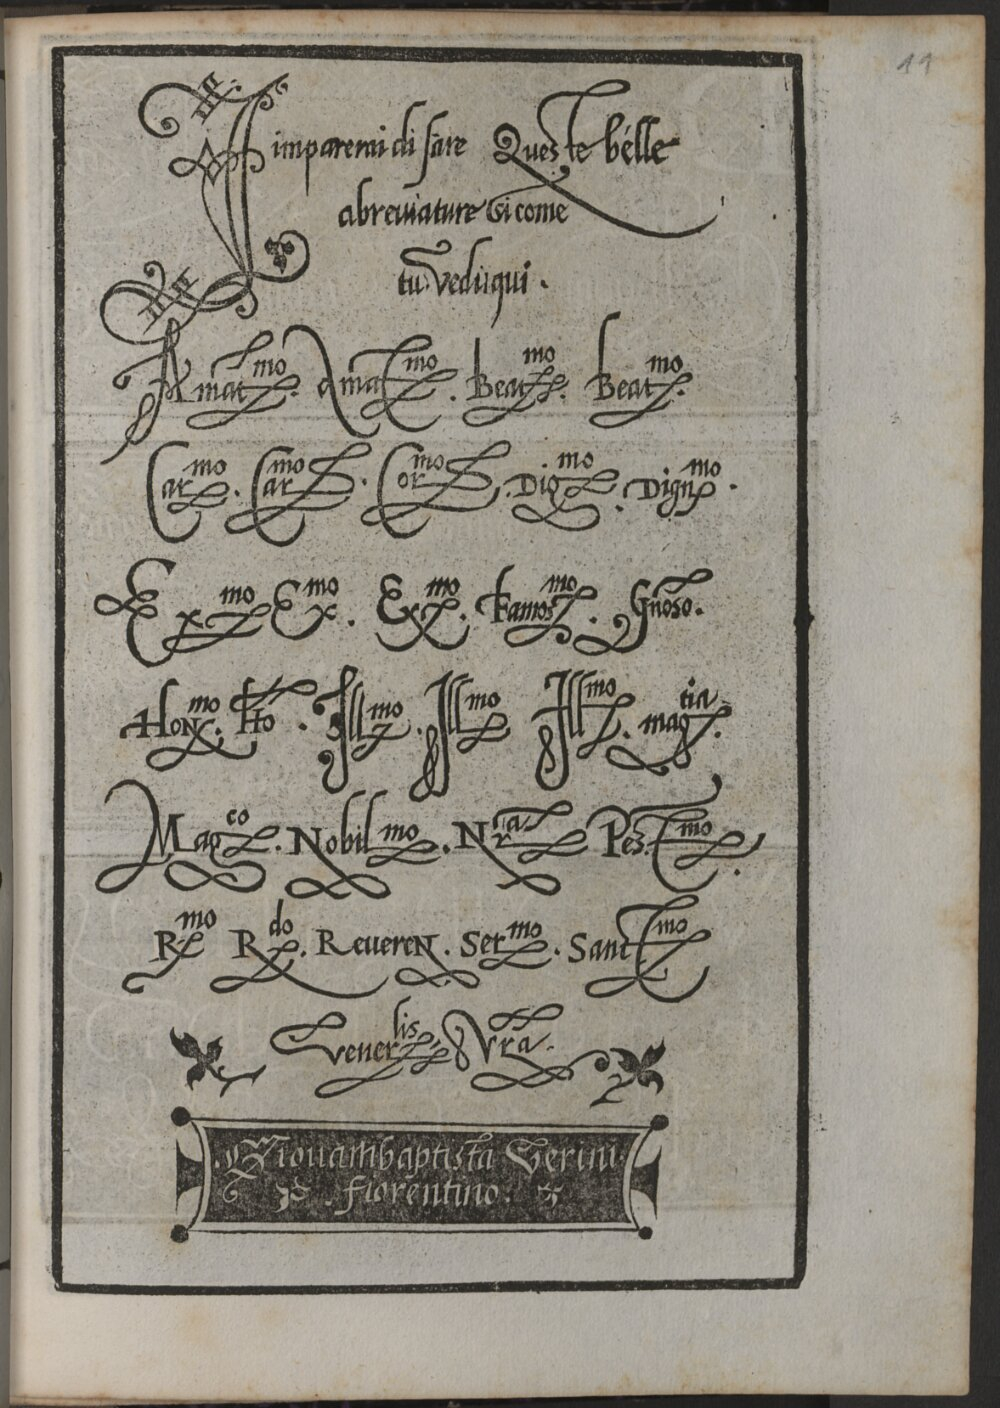 11
Imparerai di fare Queste belle
abreviature Si come
tu vedi qui.
Amat.mo Amat.mo Beat.mo Beat.mo
Car.mo. Car.mo. Cor.mo. Dig.mo. Dign.mo.
Ex.mo Ex.mo. Ex.mo. Famos.mo. Gnoso.
Hon.mo. Ho. Ill.mo. Ill.mo Ill.mo. mag.tia.
Mag.co. Nobil.mo. Nra Pest.mo.
R.mo R.do. Reveren. Ser.mo. Sant.mo
Vener.lis & Vra.
.Giovambaptista Verini.
.fiorentino.